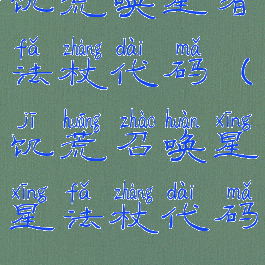 饥荒唤星者
fǎ zhàng dài mǎ
法杖代码（
jī huāng zhào huàn xīng
饥荒召唤星
xīng fǎ zhàng dài mǎ
星法杖代码